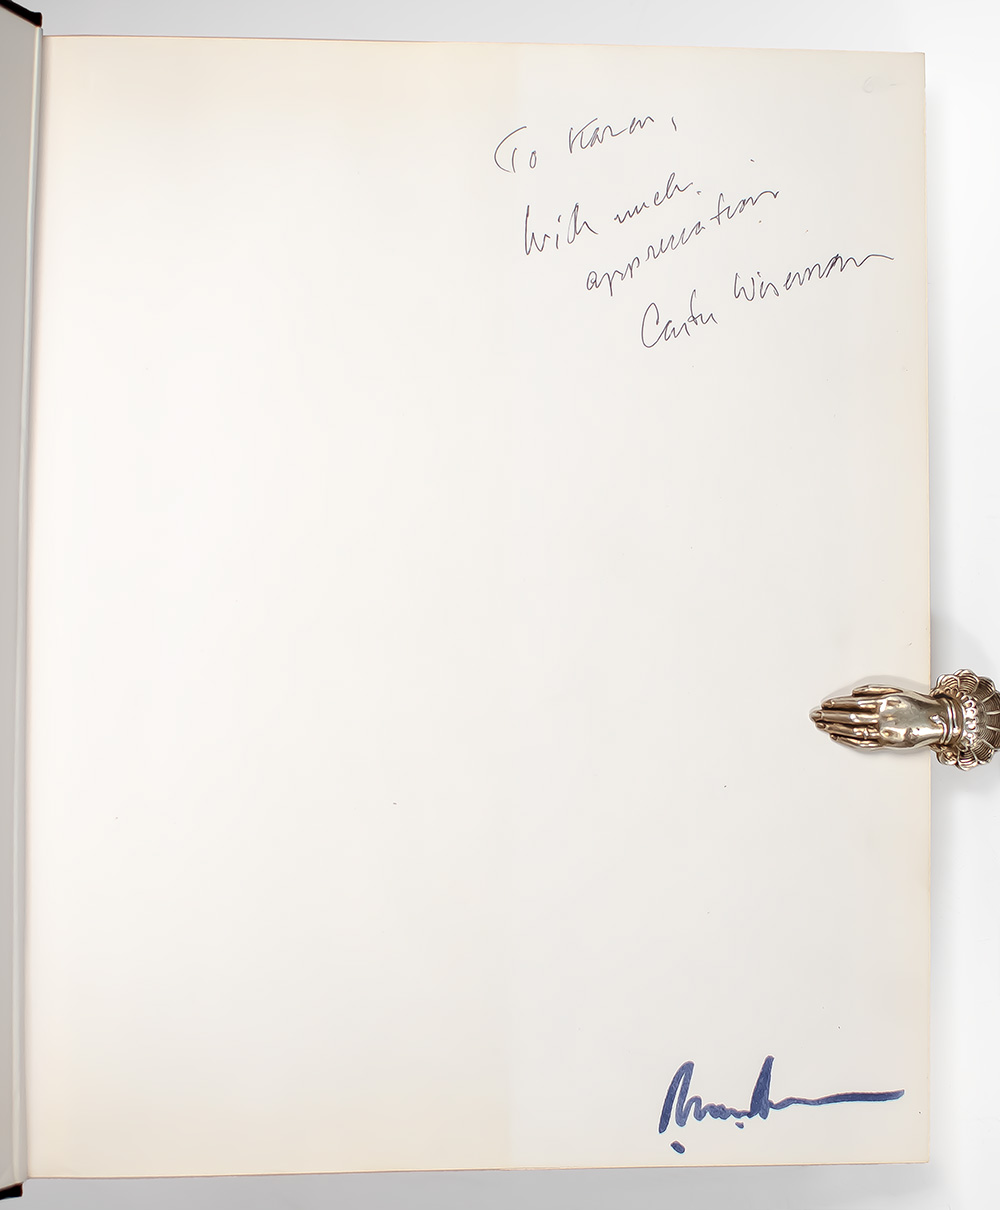 To Karen,
With much
appreciation
Carter Wiseman